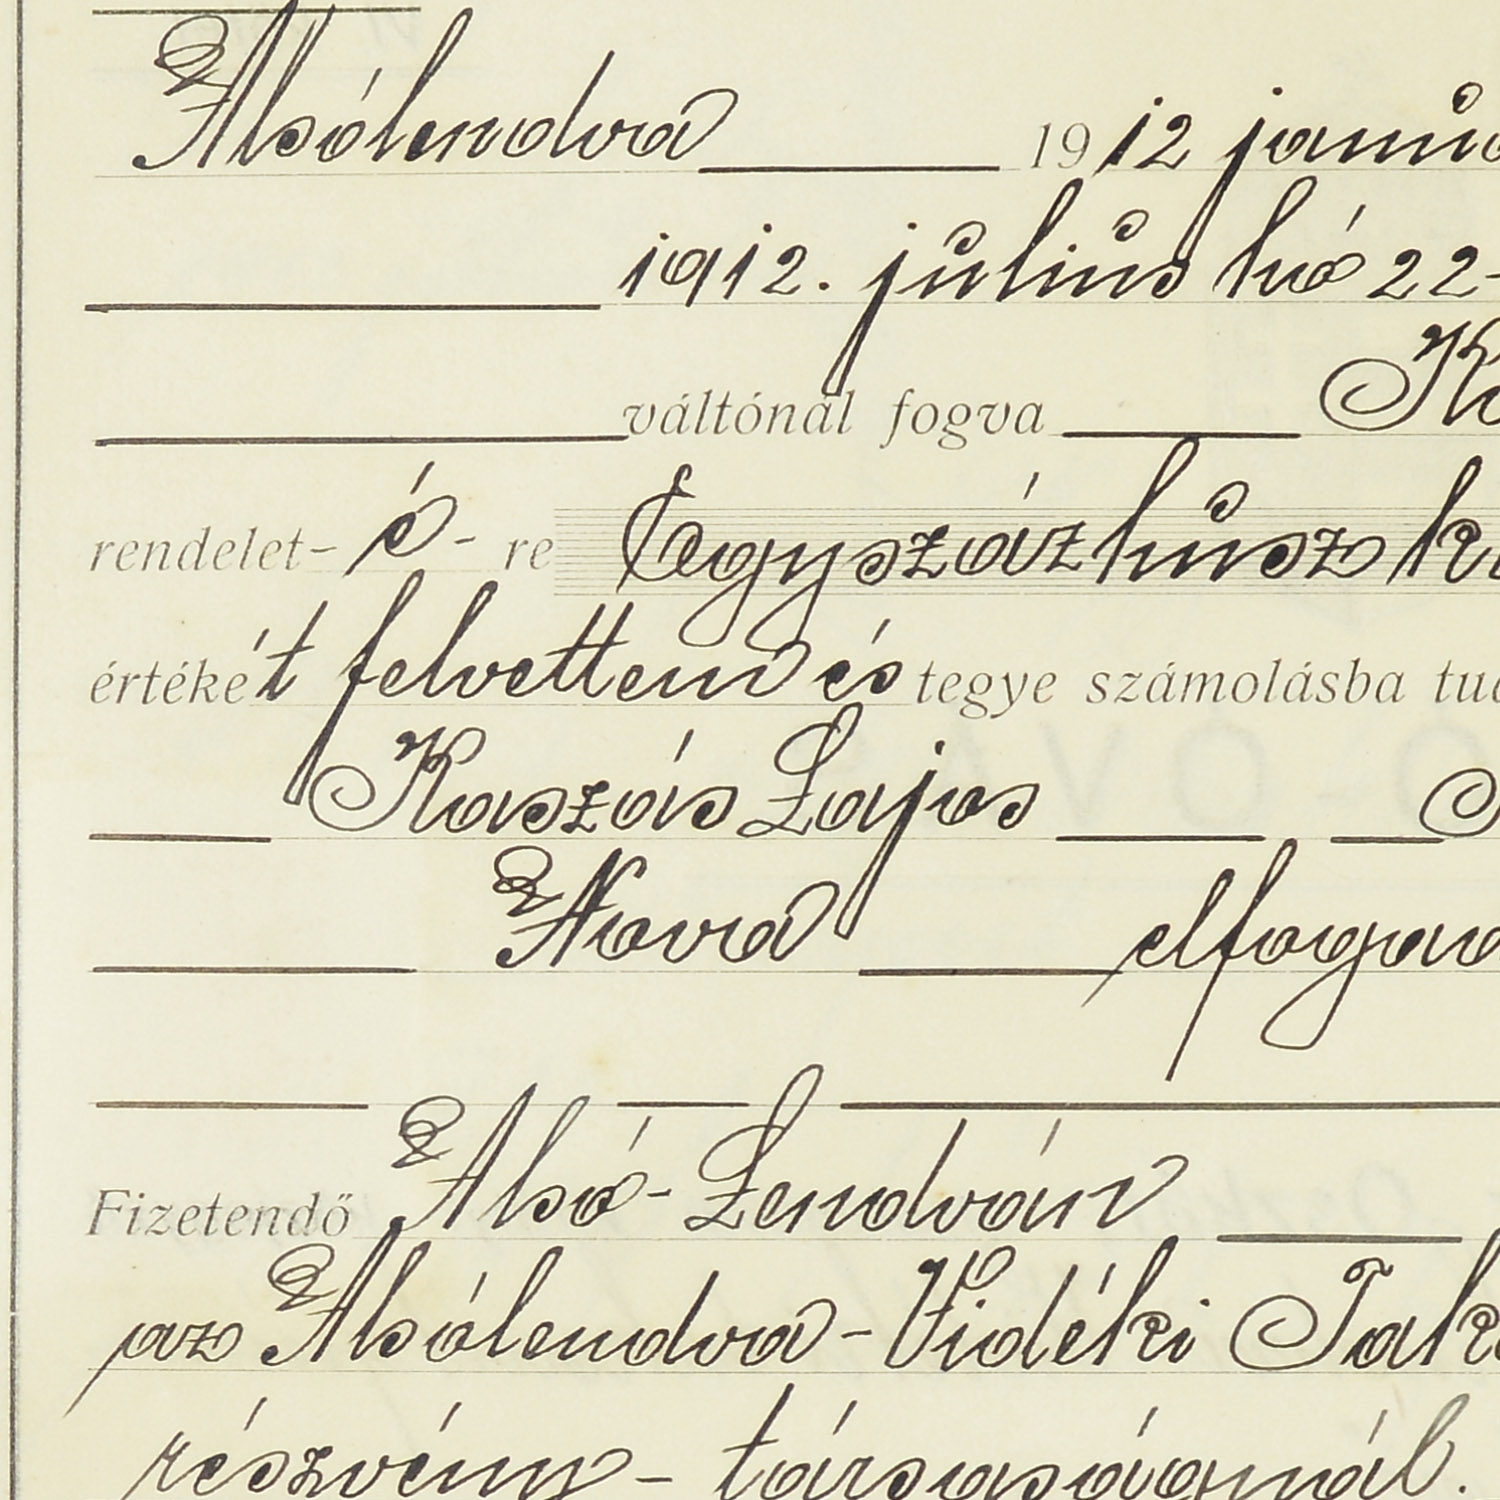 Alsólendva 1912 januá
1912. július hó 22-
váltónál fogva
rendelet-é-re Egyszázhúsz k
értékét felvettem és tegye számolásba
Kaszás Lajos
Nova elfogad
Fizetendő Alsó-Lendván
az Alsólendva-Vidéki Tak
részvény-társaságnál.